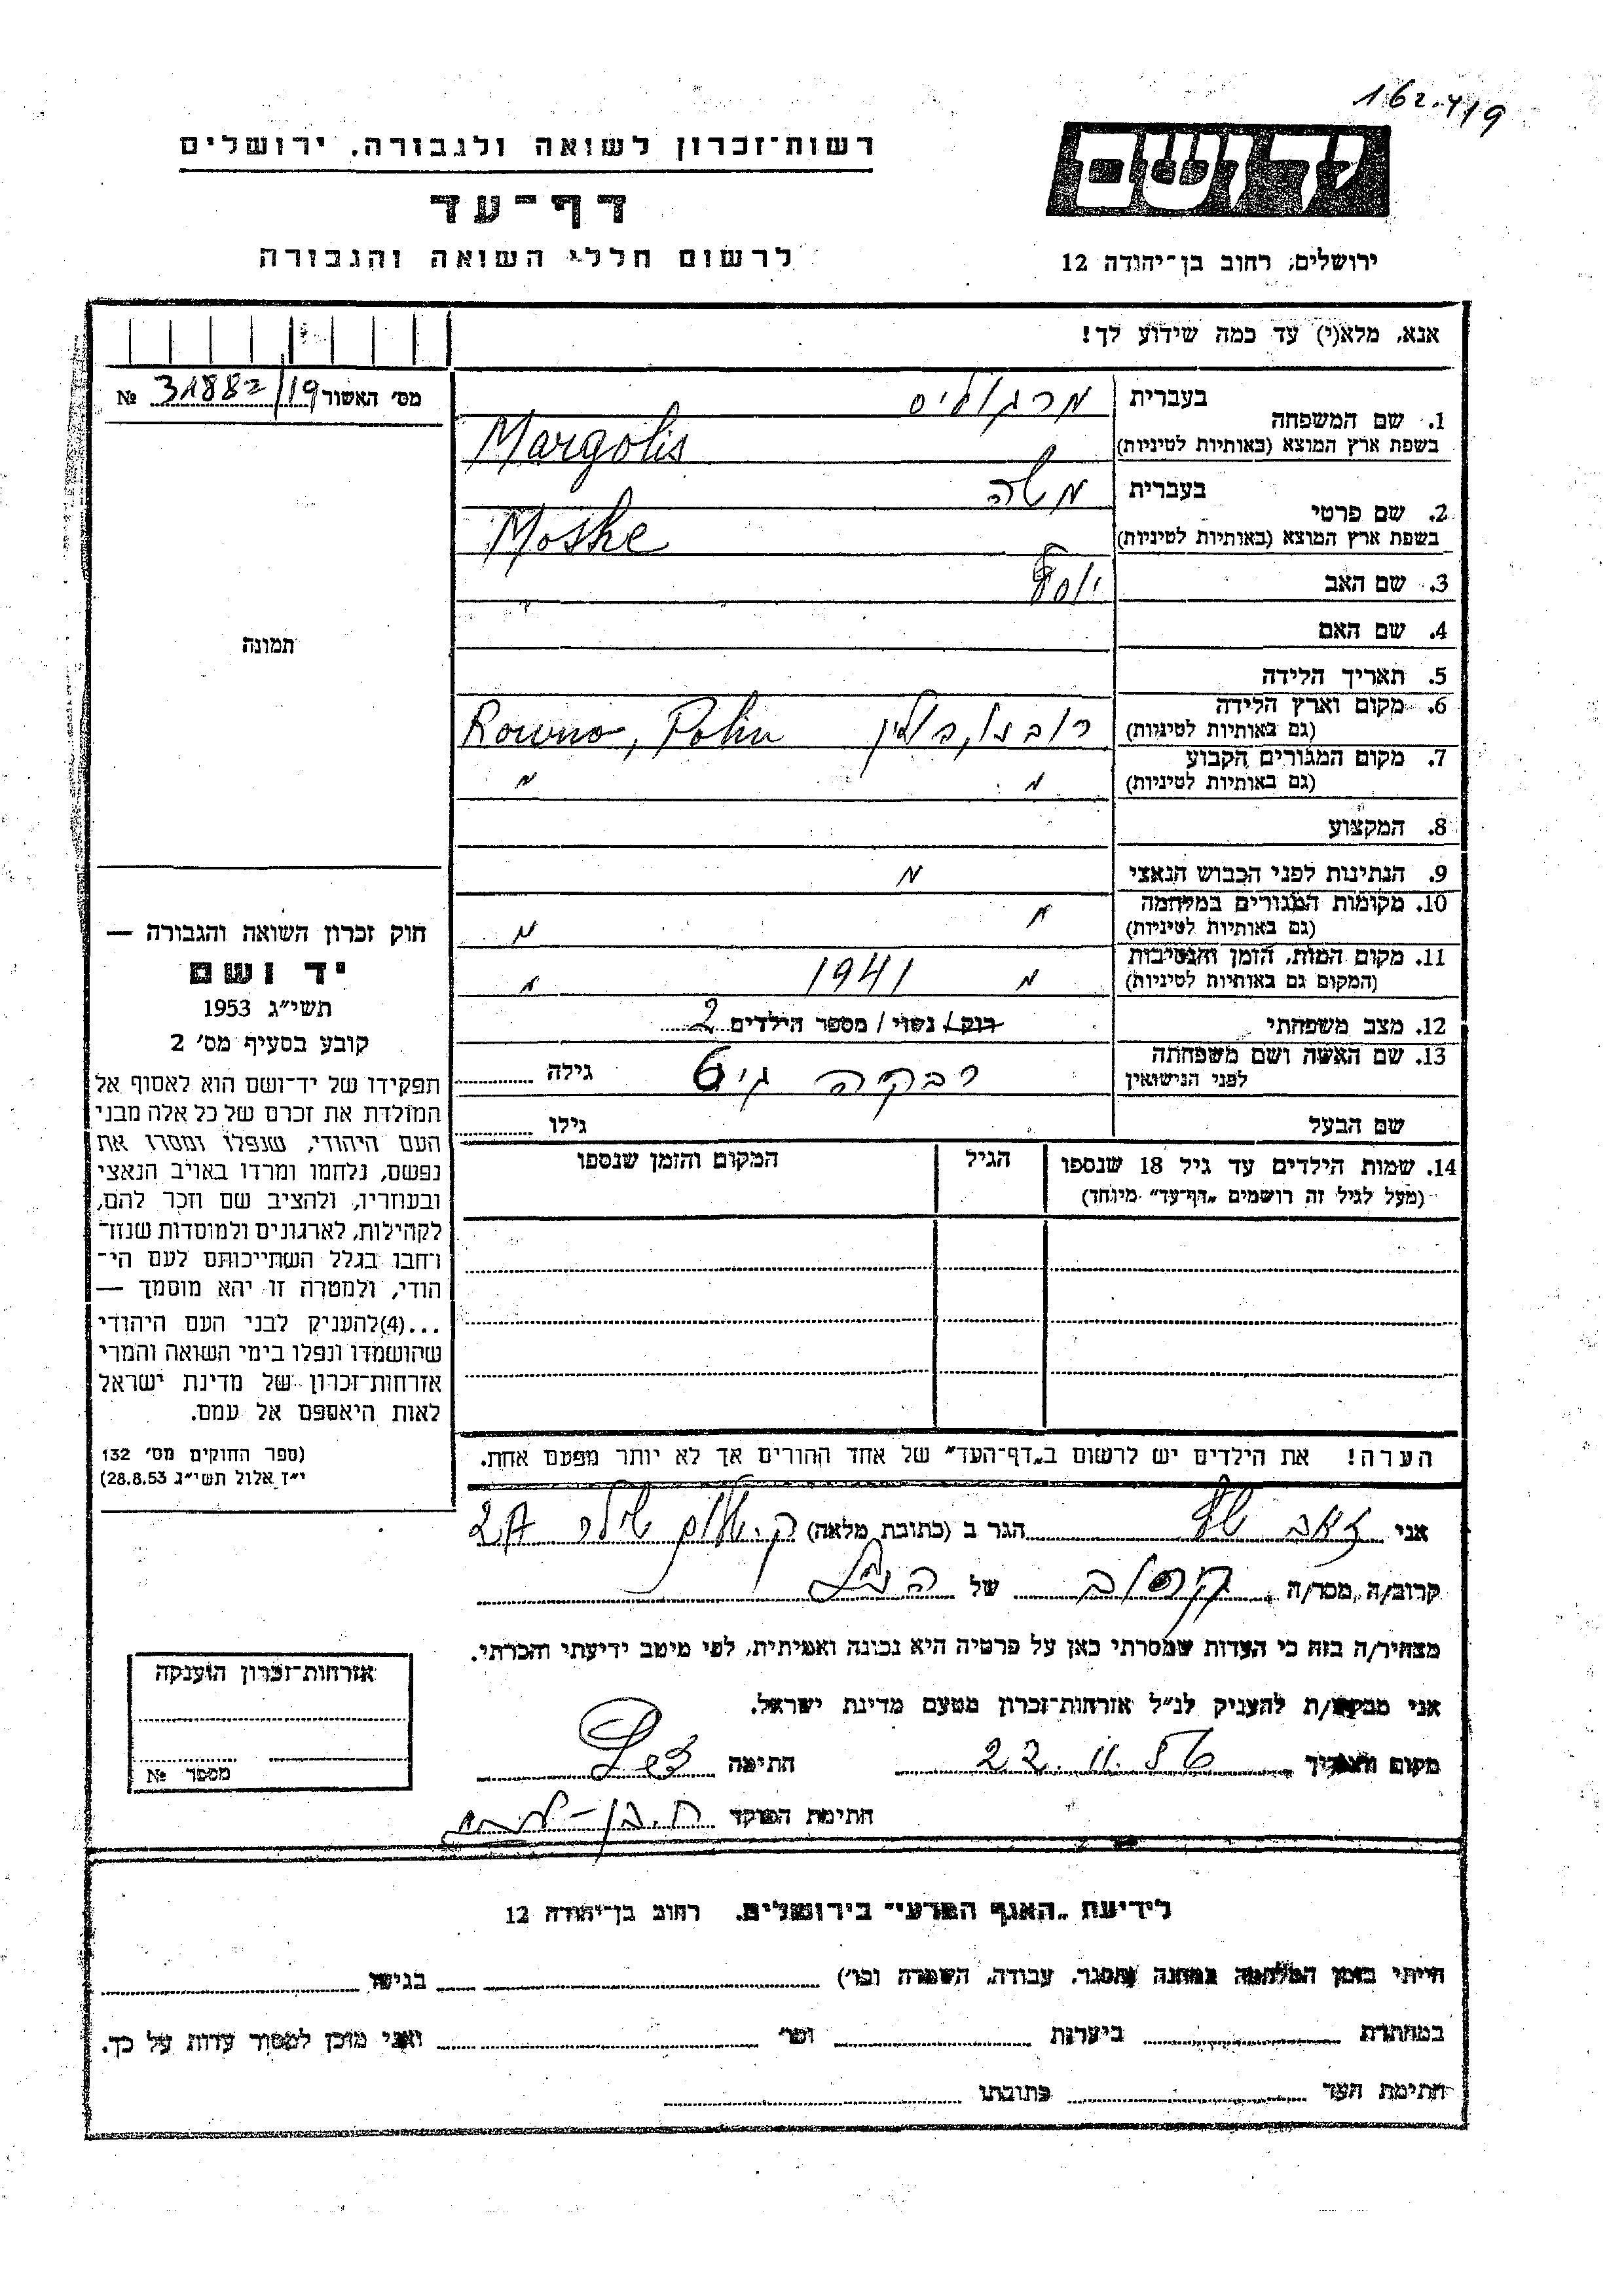 162.419
רשות־זכרון לשואה ולגבורה, ירושלים
ידושם
דף־עד
לרשום חללי השואה והגבורה
ירושלים, רחוב בן־יהודה 12
אנא, מלא(י) עד כמה שידוע לך!
מס׳ האשור 31882/19 №
1. שם המשפחה
בעברית מרגוליס
בשפת ארץ המוצא (באותיות לטיניות) Margolis
2. שם פרטי
בעברית משה
בשפת ארץ המוצא (באותיות לטיניות) Moshe
3. שם האב יוסף
4. שם האם
תמונה
5. תאריך הלידה
6. מקום וארץ הלידה
(גם באותיות לטיניות) רובנו, פולין Rowno, Polin
7. מקום המגורים הקבוע
(גם באותיות לטיניות) " "
8. המקצוע
9. הנתינות לפני הכבוש הנאצי "
10. מקומות המגורים במלחמה
(גם באותיות לטיניות) " "
11. מקום המות, הזמן והנסיבות
(המקום גם באותיות לטיניות) " 1941 "
12. מצב משפחתי רוק/ נשוי / מספר הילדים 2
13. שם האשה ושם משפחתה
לפני הנישואין רבקה גילה
שם הבעל גילו
14. שמות הילדים עד גיל 18 שנספו הגיל המקום והזמן שנספו
(מעל לגיל זה רושמים „דף־עד” מיוחד)
חוק זכרון השואה והגבורה —
יד ושם
תשי״ג 1953
קובע בסעיף מס׳ 2
תפקידו של יד־ושם הוא לאסוף אל
המולדת את זכרם של כל אלה מבני
העם היהודי, שנפלו ומסרו את
נפשם, נלחמו ומרדו באויב הנאצי
ובעוזריו, ולהציב שם וזכר להם,
לקהילות, לארגונים ולמוסדות שנח־
רחבו בגלל השתייכותם לעם הי־
הודי, ולמטרה זו יהא מוסמך —
...(4)להעניק לבני העם היהודי
שהושמדו ונפלו בימי השואה והמרי
אזרחות־זכרון של מדינת ישראל
לאות היאספם אל עמם.
(ספר החוקים מס׳ 132
י״ז אלול תשי״ג 28.8.53)
הערה! את הילדים יש לרשום ב„דף־העד” של אחד ההורים אך לא יותר מפעם אחת.
אני זאב הגר ב (כתובת מלאה)
קרוב/ה, מכר/ה קרוב של הנ״ל
מצהיר/ה בזה כי העדות שמסרתי כאן על פרטיה היא נכונה ואמיתית, לפי מיטב ידיעתי והכרתי.
אני מבקש/ת להעניק לנ״ל אזרחות־זכרון מטעם מדינת ישראל.
מקום ותאריך 22.11.56 חתימה
חתימת הפוקד ח. בן־
אזרחות־זכרון הוענקה
מספר №
לידיעת „האגף המדעי” בירושלים, רחוב בן־יהודה 12
הייתי בזמן המלחמה במחנה (הסגר, עבודה, השמדה וכו׳) בגיטו
במחתרת ביערות וכו׳ ואני מוכן למסור עדות על כך.
חתימת העד כתובתו